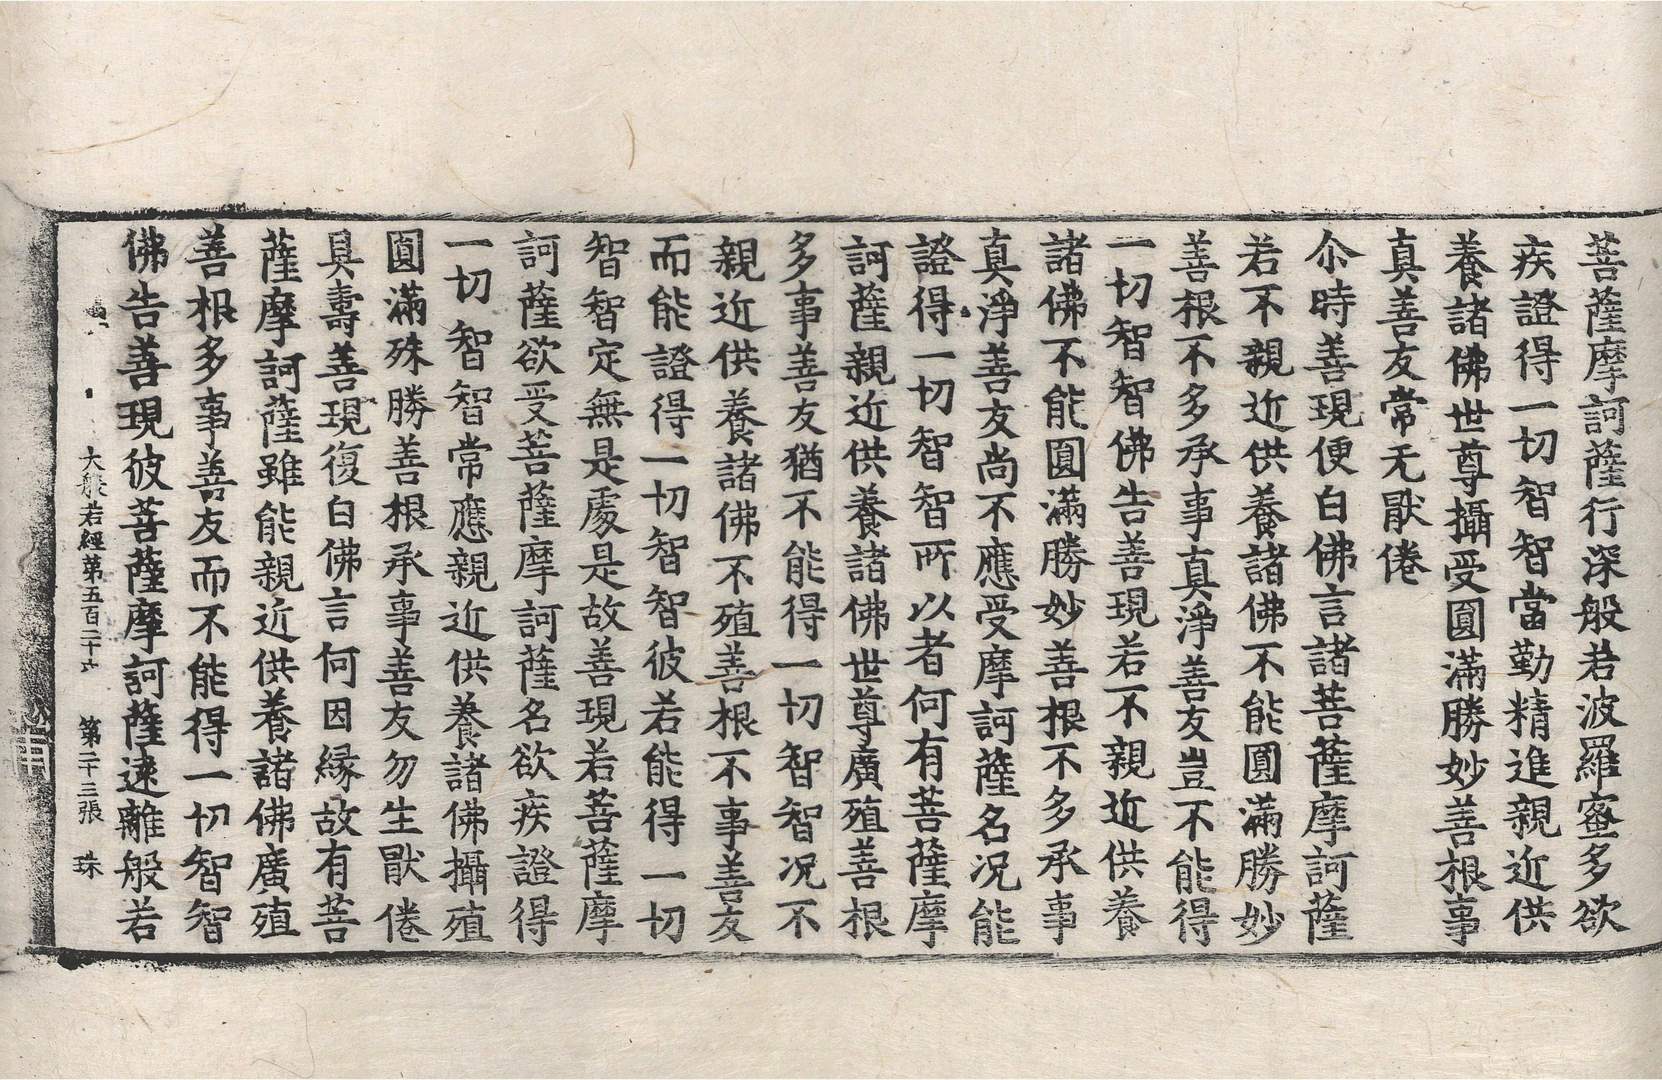 菩薩摩訶薩行深般若波羅蜜多欲
疾證得一切智智當勤精進親近供
養諸佛世尊攝受圓滿勝妙善根事
真善友常无猒倦
尒時善現便白佛言諸菩薩摩訶薩
若不親近供養諸佛不能圓滿勝妙
善根不多承事真淨善友豈不能得
一切智智佛告善現若不親近供養
諸佛不能圓滿勝妙善根不多承事
真淨善友尚不應受摩訶薩名況能
證得一切智智所以者何有菩薩摩
訶薩親近供養諸佛世尊廣殖善根
多事善友猶不能得一切智智况不
親近供養諸佛不殖善根不事善友
而能證得一切智智彼若能得一切
智智定無是處是故善現若菩薩摩
訶薩欲受菩薩摩訶薩名欲疾證得
一切智智常應親近供養諸佛攝殖
圓滿殊勝善根承事善友勿生猒倦
具壽善現復白佛言何因縁故有菩
薩摩訶薩雖能親近供養諸佛廣殖
善根多事善友而不能得一切智智
佛告善現彼菩薩摩訶薩遠離般若
大般若經第五百二十六 第二十三張 珠